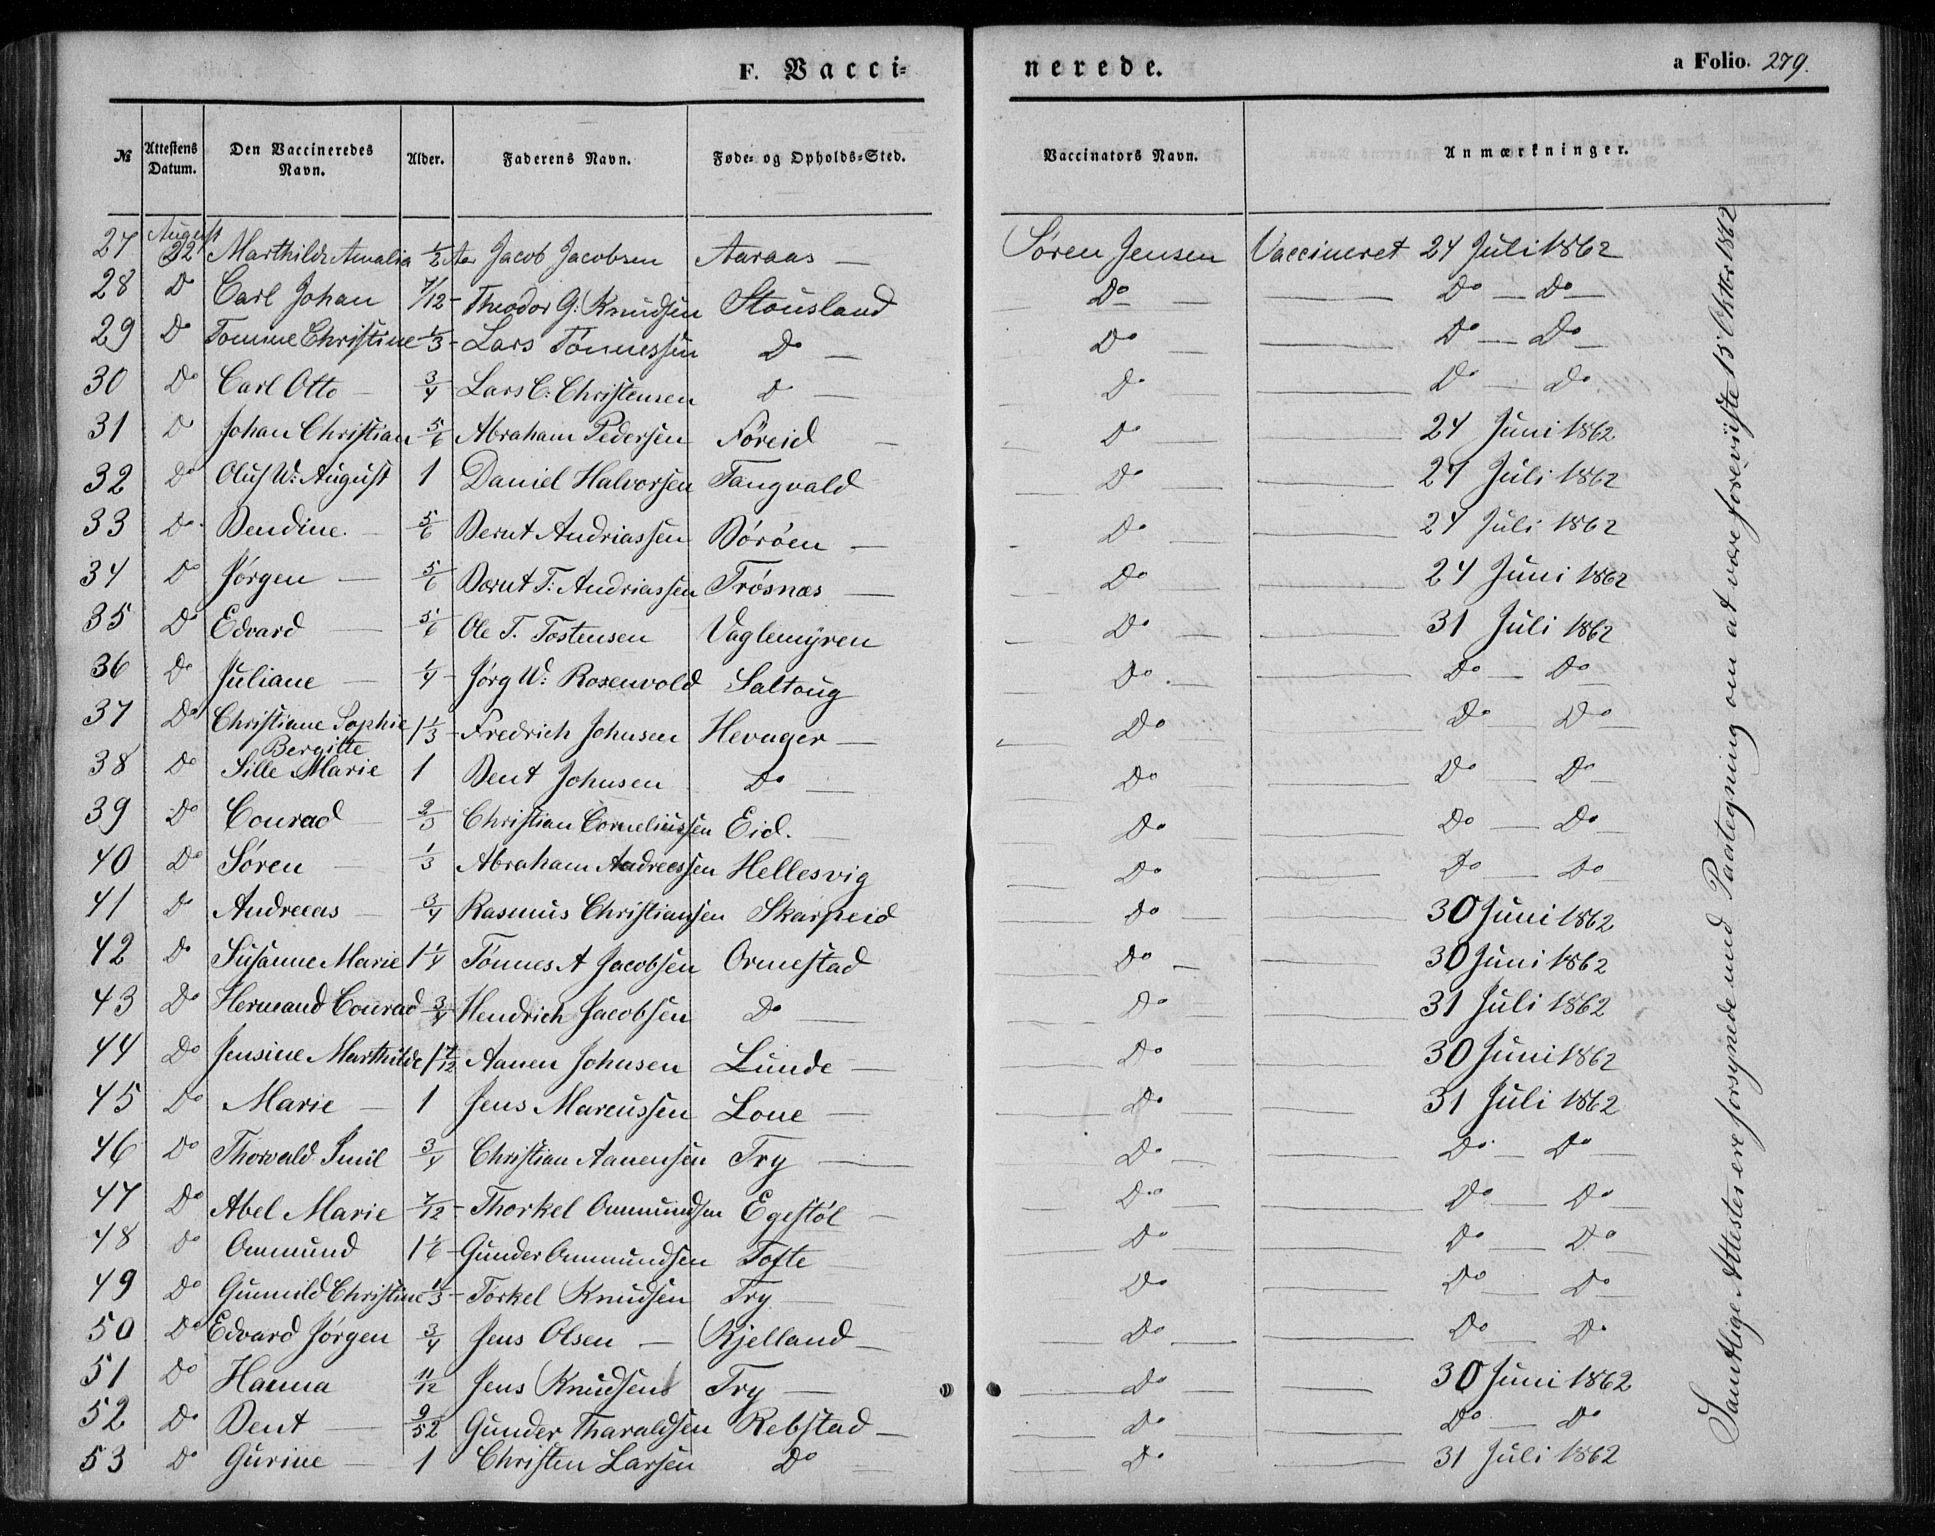 F. Vacci=
nerede.
a Folio. 279.
№ Attestens Datum. Den Vaccineredes Navn. Alder. Faderens Navn. Føde= og Opholds=Sted. Vaccinators Navn. Anmærkninger.
27 August 22 Marthilde Amalia ½ Aar Jacob Jacobsen Aaraas — Søren Jensen Vaccineret 24 Juli 1862
28 Do Carl Johan 7/12 - Theodor G: Knudsen Stousland Do — Do — Do —
29 Do Tomme Christine 1/3 - Lars Tønnessen Do — Do — Do — Do
30 Do Carl Otto — 3/4 Lars C. Christensen Do — Do Do — Do
31 Do Johan Christian 5/6 Abraham Pedersen Føreid — Do — 24 Juni 1862
32 Do Oluf W: August 1 Daniel Halvorsen Tangvald Do — 27 Juli 1862
33 Do Bendine. — 5/6 Bernt Andriassen Børøen — Do — 24 Juli 1862
34 Do Jørgen — 5/6 Bernt T: Andriassen Trøsnæs — Do — 24 Juni 1862
35 Do Edvard — 5/6 Ole T. Tostensen Vaglemyren Do — 31 Juli 1862
36 Do Juliane — 1/4 - Jørg W: Rosenvold Saltoug Do — Do Do —
37 Do Christiane Sophie 1 1/3 - Fredrich Johnsen Hevager — Do Do — Do —
38 Do Bergitte Sille Marie 1 Bent Johnsen Do — Do Do — Do
39 Do Conrad — 2/3 Christian Corneliussen Eid. — Do — Do — Do —
40 Do Søren — 1/3 Abraham Andreessen Hellesvig Do — Do — Do —
41 Do Andreeas — 3/4 Rasmus Christiansen Skarpeid Do — 30 Juni 1862
42 Do Susanne Marie 1 1/4 Tønnes A Jacobsen Ormestad Do — 30 Juni 1862
43 Do Hermand Conrad 3/4 Hendrich Jacobsen Do — Do — 31 Juli 1862
44 Do Jensine Marthilde 1 7/12 Aanen Johnsen Lunde — Do — 30 Juni 1862
45 Do Marie — 1 Jens Marcussen Lone — Do — 31 Juli 1862
46 Do Thorvald Emil 3/4 Christian Aanensen Try — Do — Do — Do
47 Do Abel Marie 7/12 - Thorkel Ommundsen Egestøl — Do — Do — Do
48 Do Ommund 1 1/6 - Gunder Ommundsen Tofte — Do Do — Do —
49 Do Gunnild Christine 1/3 - Torkel Knudsen Try — Do Do — Do —
50 Do Edvard Jørgen 3/4 Jens Olsen — Kjelland — Do — Do — Do
51 Do Hanna 11/12 Jens Knudsens Try — Do — 30 Juni 1862
52 Do Bent — 9/52 Gunder Tharaldsen Rebstad — Do — Do — Do
53 Do Gurine — 1 Christen Larsen Do — Do — 31 Juli 1862
Samtlige Attester ere forsynede med Paategning om at være foreviiste 15 Oktbr 1862